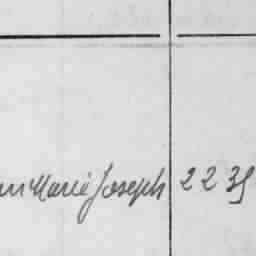 Marie Joseph 2 2 39